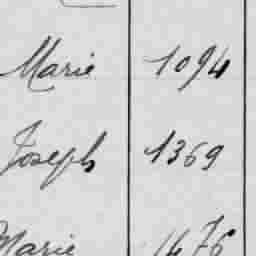 Marie 1094
Joseph 1369
Marie 1476